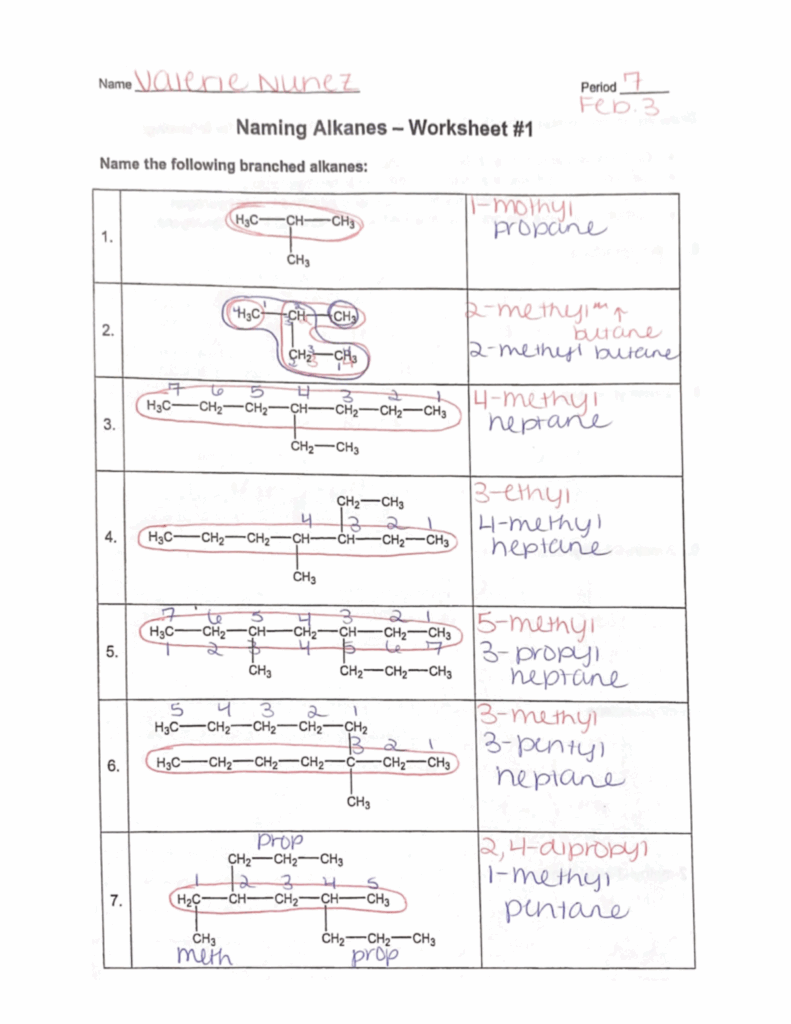 Name Valerie Nunez Period 7
Feb. 3
Naming Alkanes – Worksheet #1
Name the following branched alkanes:
1.
H₃C—CH—CH₃
CH₃
1-mothyl
propane
2.
4 H₃C 1 2 CH 3 CH₃
CH₂ 3 CH₃ 4
2 3 1 4
2-methyl ↑
butane
2-methyl butane
3.
7 6 5 4 3 2 1
H₃C—CH₂—CH₂—CH—CH₂—CH₂—CH₃
CH₂—CH₃
4-methyl
heptane
4.
CH₂—CH₃
4 3 2 1
H₃C—CH₂—CH₂—CH—CH—CH₂—CH₃
CH₃
3-ethyl
4-methyl
heptane
5.
7 6 5 4 3 2 1
H₃C—CH₂—CH—CH₂—CH—CH₂—CH₃
1 2 3 4 5 6 7
CH₃ CH₂—CH₂—CH₃
5-methyl
3-propyl
heptane
6.
5 4 3 2 1
H₃C—CH₂—CH₂—CH₂—CH₂
3 2 1
H₃C—CH₂—CH₂—CH₂—C—CH₂—CH₃
CH₃
3-methyl
3-pentyl
heptane
7.
prop
CH₂—CH₂—CH₃
1 2 3 4 5
H₂C—CH—CH₂—CH—CH₃
CH₃ CH₂—CH₂—CH₃
meth prop
2,4-dipropyl
1-methyl
pentane